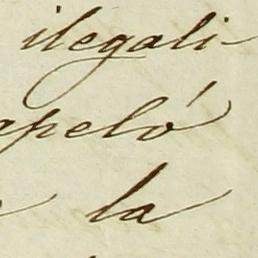 ilegali-
apeló
la